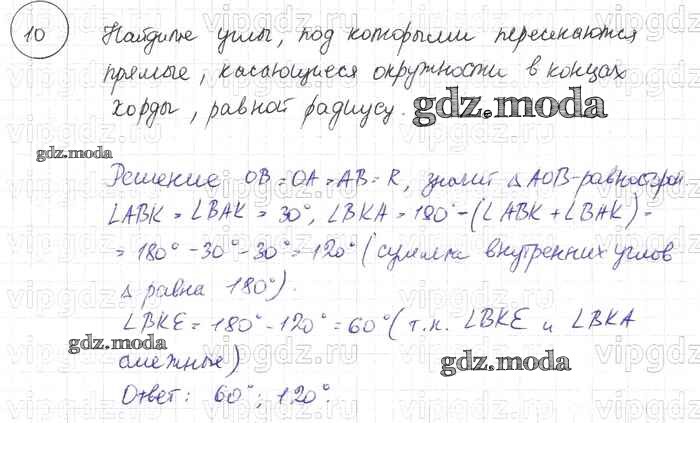 10 Найдите углы, под которыми пересекаются
прямые, касающиеся окружности в концах
хорды, равной радиусу.
gdz.moda
gdz.moda
Решение OB = OA = AB = R, значит △ AOB - равнострой
∠ABK = ∠BAK = 30°, ∠BKA = 180° - (∠ABK + ∠BAK) =
= 180° - 30° - 30° = 120° (сумма внутренних углов
△ равна 180°).
∠BKE = 180° - 120° = 60° (т.к. ∠BKE и ∠BKA
gdz.moda
смежные)
gdz.moda
Ответ: 60°; 120°.
vipgdz.ru